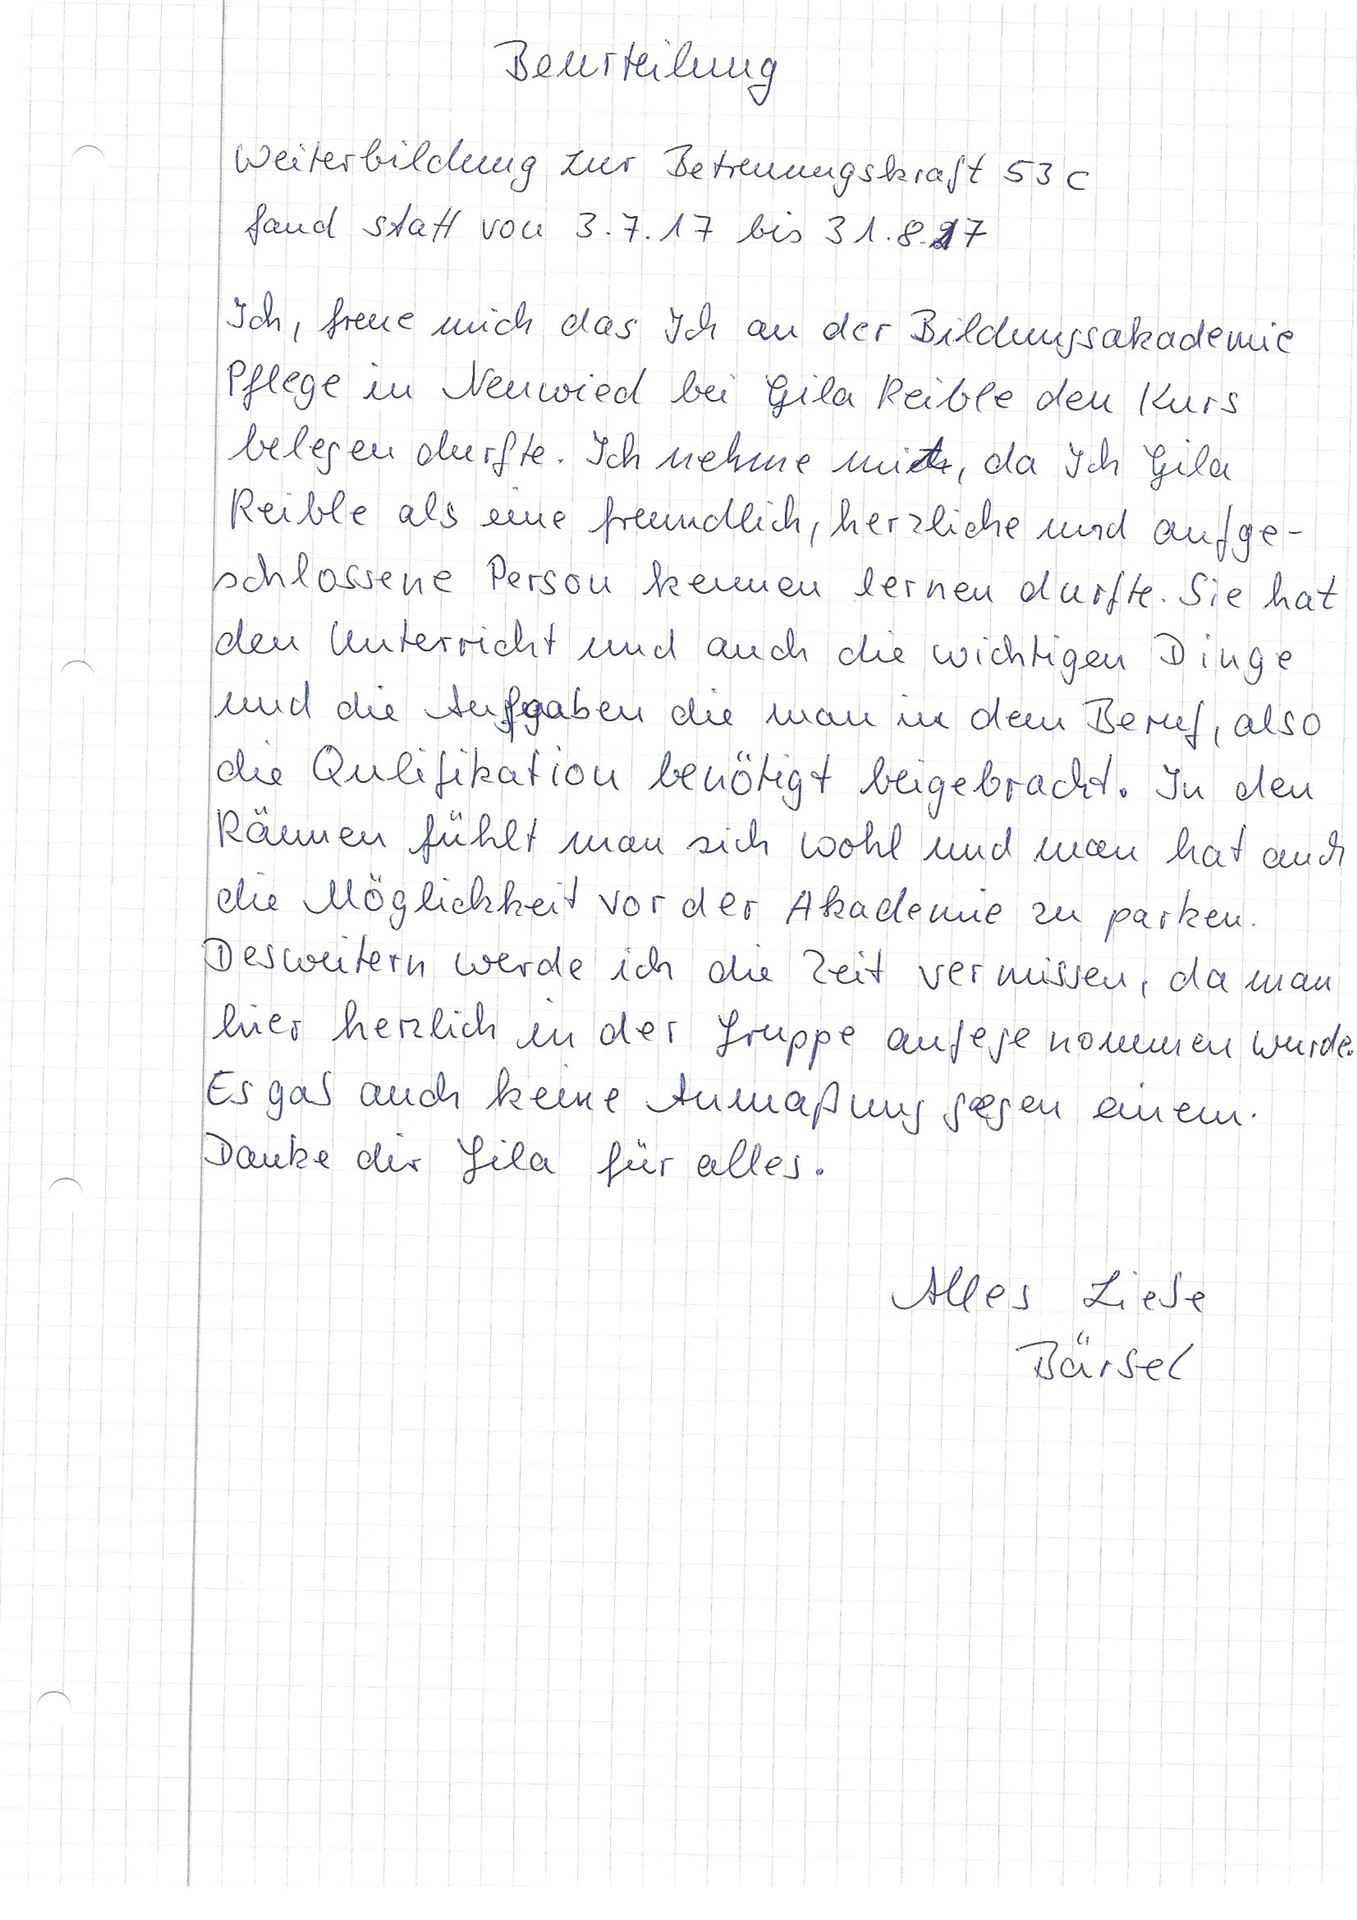 Beurteilung
Weiterbildung zur Betreuungskraft 53 c
fand statt von 3.7.17 bis 31.8.17
Ich, freue mich das Ich an der Bildungsakademie
Pflege in Neuwied bei Gila Reible den Kurs
belegen durfte. Ich nehme mit, da Ich Gila
Reible als eine freundlich, herzliche und aufge-
schlossene Person kennen lernen durfte. Sie hat
den Unterricht und auch die wichtigen Dinge
und die Aufgaben die man in dem Beruf, also
die Qulifikation benötigt beigebracht. In den
Räumen fühlt man sich wohl und man hat auch
die Möglichkeit vor der Akademie zu parken.
Desweitern werde ich die Zeit vermissen, da man
hier herzlich in der Gruppe aufgenommen wurde.
Es gab auch keine Anmaßung gegen einem.
Danke dir Gila für alles.
Alles Liebe
Bärbel